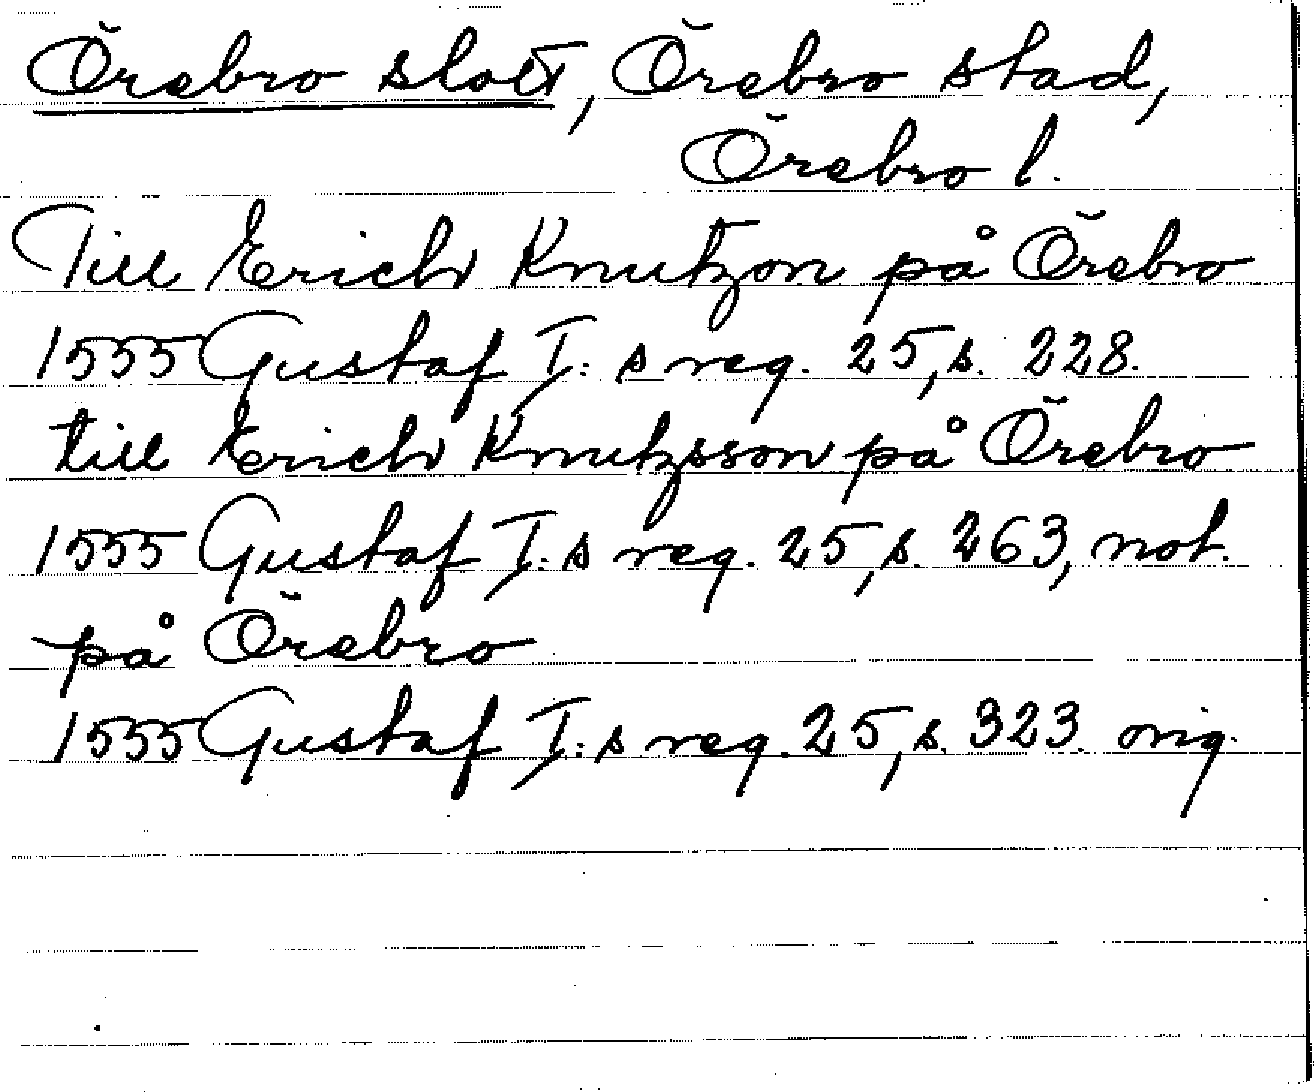 Örebro slott, Örebro stad,
Örebro l.
Till Erich Knutzon på Örebro
1555 Gustaf I:s reg. 25, s. 228.
till Erich Knutzsson på Örebro
1555 Gustaf I:s reg. 25, s. 263, not.
på Örebro
1555 Gustaf I:s reg. 25, s. 323. orig.